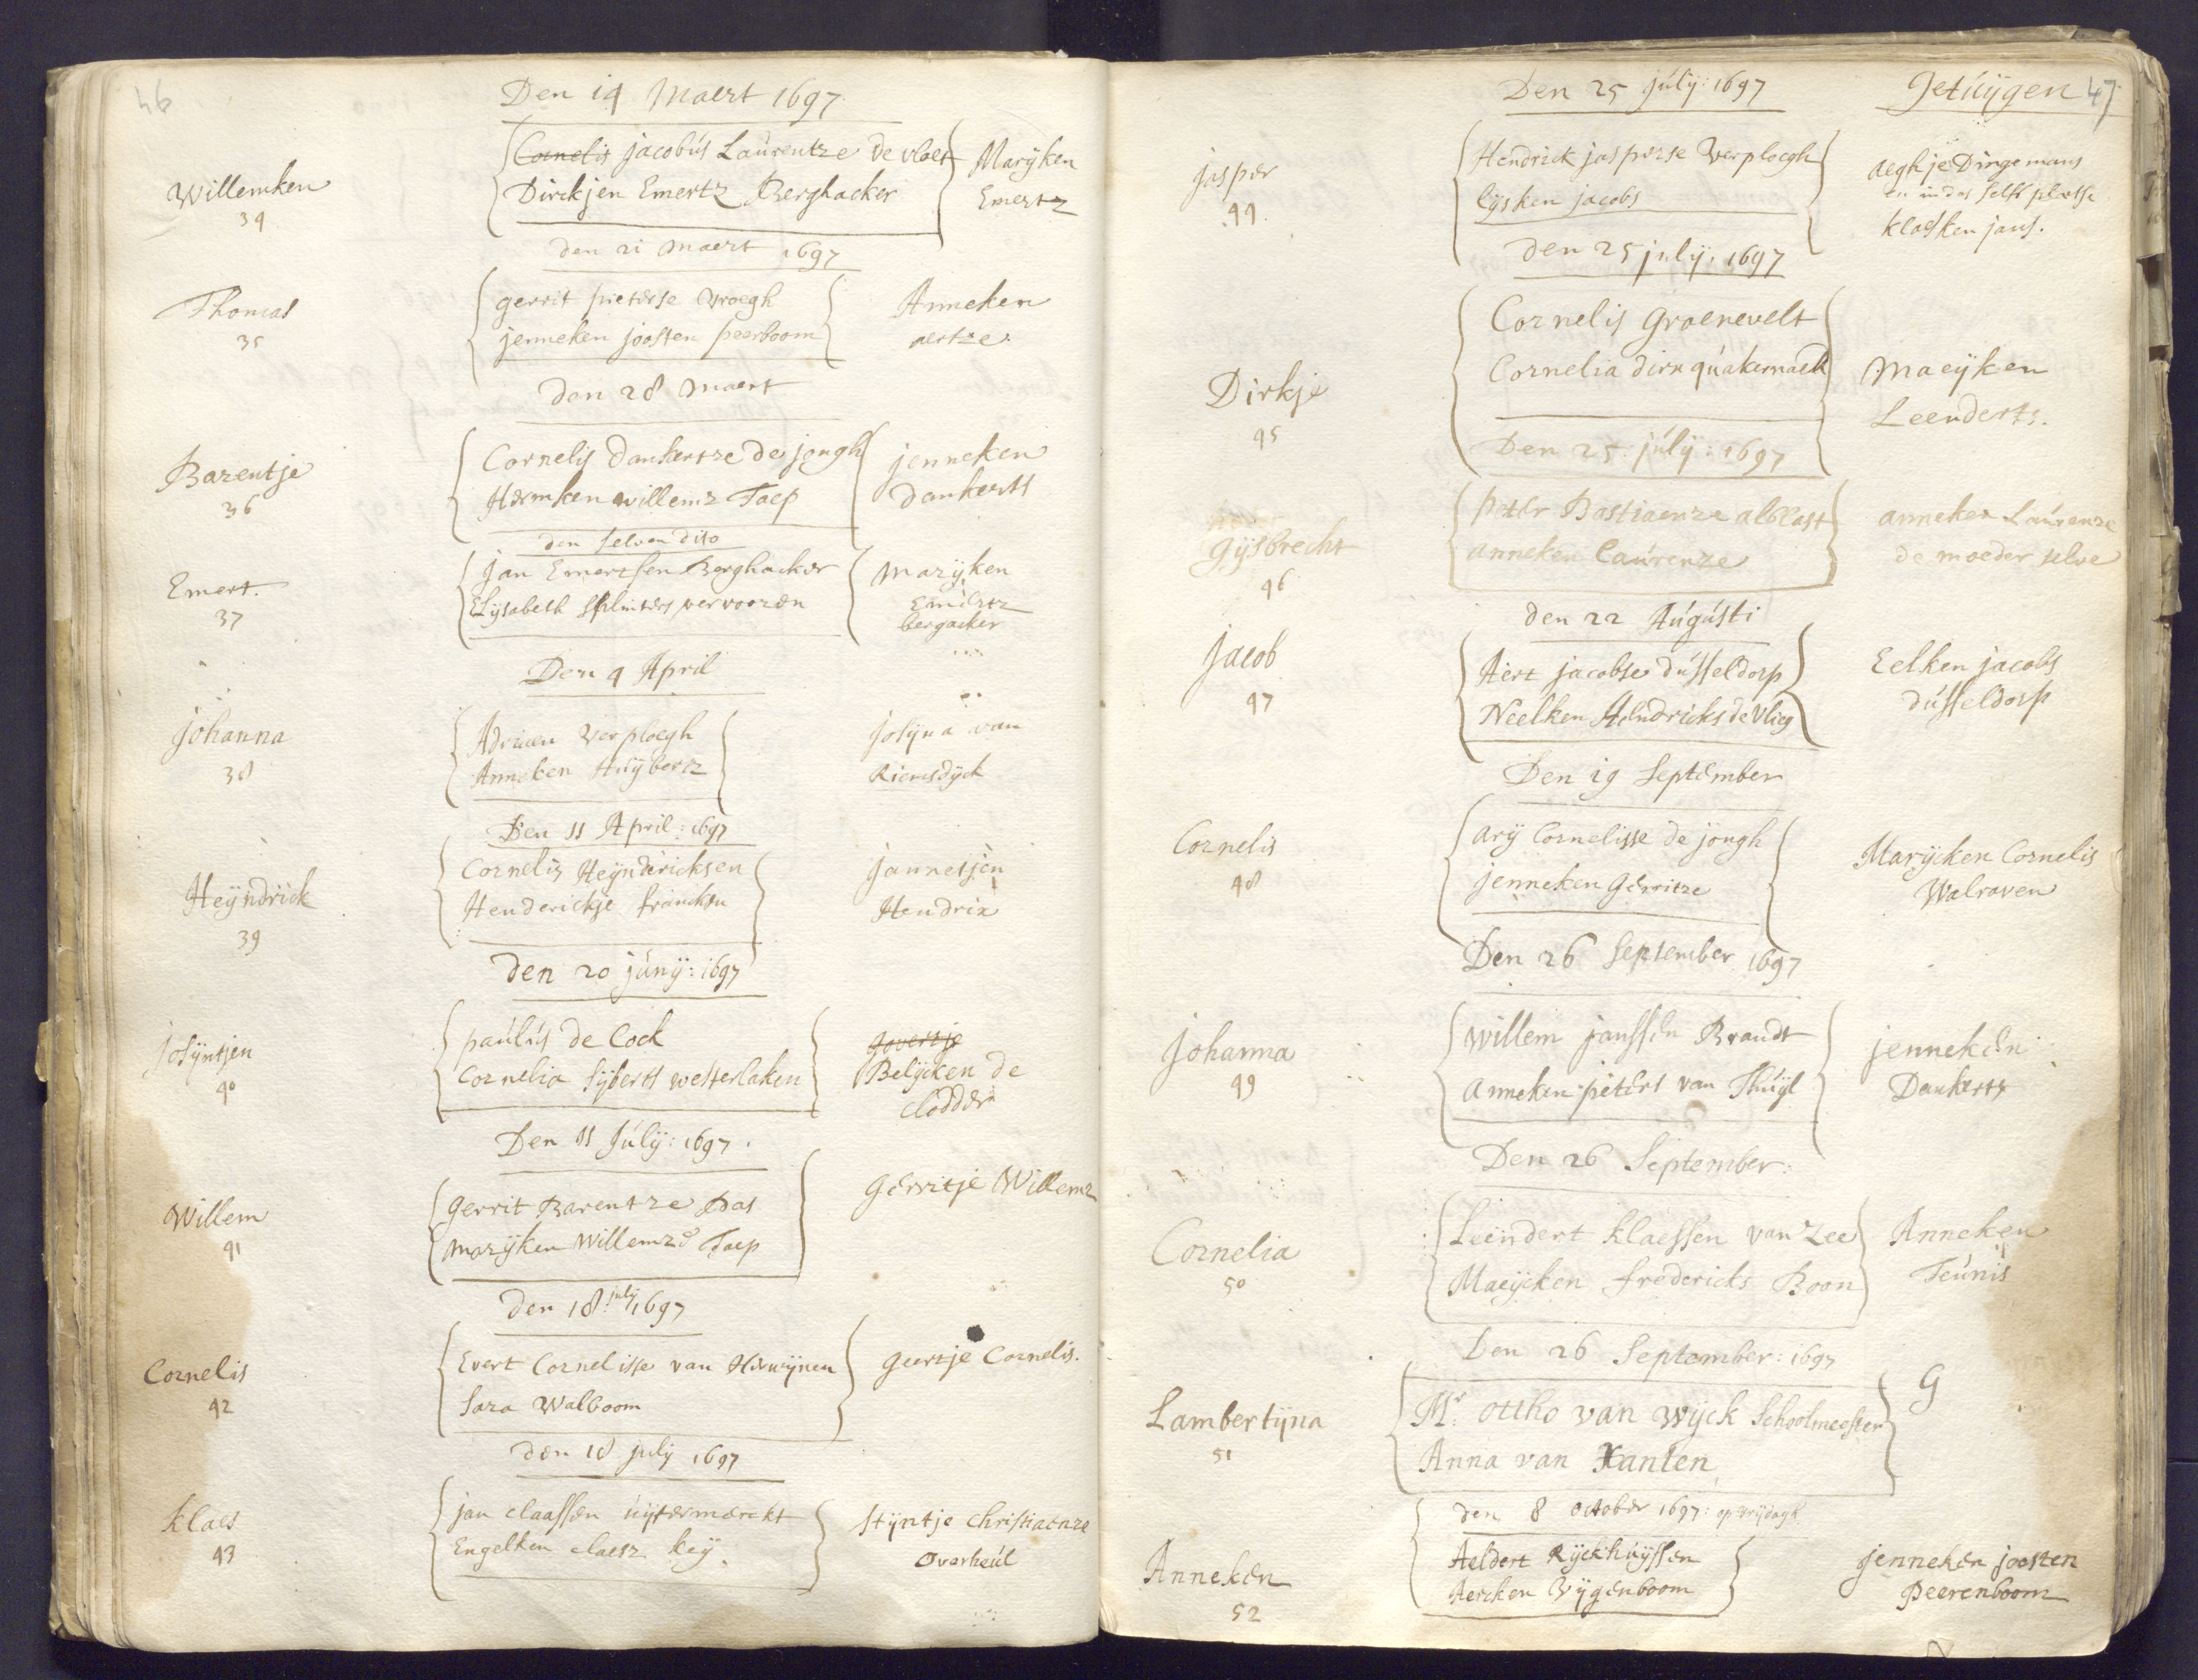 46
Den 14 Maert 1697
Willemken
34
Cornelis jacobús Laúrentze de vloet
Dirckjen Emertz Berghacker
Marÿken
Emertz
den 21 maert 1697
Thomas
35
gerrit pieterse Vroegh
jenneken joosten peerboom
Anneken
aertze
den 28 maert
Barentje
36
Cornelis dankertze de jongh
Hermken willemz Taep
jenneken
dankerts
den selven dito
Emert.
37
Jan Emertsen Berghacker
Elÿsabeth splinters vervooren
marÿken
Emertz
bergacker
Den 4 April
johanna
38
Adriaen verploegh
Anneken Húÿbertz
josÿna van
Riemsdÿck
Den 11 April: 1697
Heÿndrick
39
Cornelis Heÿndericksen
Henderickje francksn
jannetjen
Hendrix
den 20 júnÿ: 1697
josÿntjen
40
paúlús de Cock
Cornelia sÿberts westerlaken
govertje
Belÿcken de
clodder
Den 11 Júlÿ: 1697.
Willem
41
gerrit Barentze Bas
marÿken Willemze Taep
gerritje Willemz
den 18 julÿ 1697
Cornelis
42
Evert Cornelisse van Herwÿnen
Sara Walboom
geertje Cornelis.
den 18 julÿ 1697
klaes
43
jan claassen úÿtermerckt
Engelken claesz keÿ
stÿntje christiaenze
overheúl
Den 25 júlÿ: 1697
Getúÿgen 47
jasper
44.
Hendrick jasperse verploegh
lÿsken jacobs
aeghje Dingemans
en in des selfs plaetse
klaesken jans.
den 25 julÿ: 1697
Dirkje
45
Cornelis groenevelt
Cornelia dirx qúakernaeck
maeÿken
Leenderts.
Den 25 júlÿ: 1697
gÿsbrecht
46
peter Bastiaenze alblast
anneken laúrenze
anneken Laúrenze
de moeder selve
den 22 Aúgústi
jacob
47
Aert jacobse dússeldorp
Neelken Hendricks de Vlieg
Eelken jacobs
dússeldorp
Den 19 september
Cornelis
48
arÿ Cornelisse de jongh
jenneken gerritze
Marÿcken Cornelis
Walraven
Den 26 september 1697
johanna
49
willem janssen Brandt
anneken peters van Thúÿl
jenneken
Dankerts
Den 26 September:
Cornelia
50
Leendert klaessen van Zee
Maeÿcken fredericks Boon
Anneken
Teúnis
Den 26 September: 1697
Lambertÿna
51
Mr. ottho van wÿck schoolmeester
Anna van Xanten
G
den 8 october 1697: op vrÿdagh
Anneken
52
Aeldert Rÿckhúÿsen
Aercken Vÿgenboom
jenneken joosten
Peerenboom